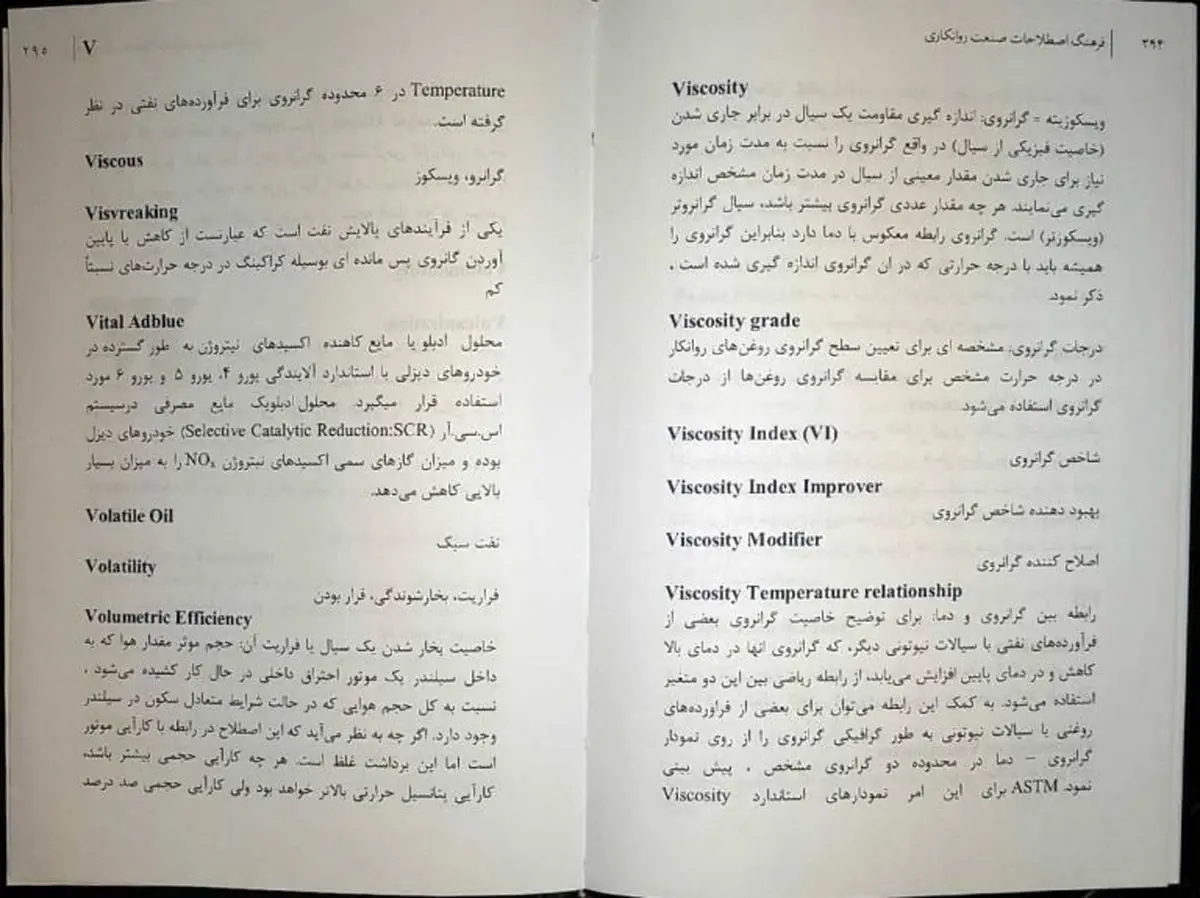 ۲۹۴ | فرهنگ اصطلاحات صنعت روانکاری
Viscosity
ویسکوزیته = گرانروی: اندازه گیری مقاومت یک سیال در برابر جاری شدن
(خاصیت فیزیکی از سیال) در واقع گرانروی را نسبت به مدت زمان مورد
نیاز برای جاری شدن مقدار معینی از سیال در مدت زمان مشخص اندازه
گیری می‌نمایند. هر چه مقدار عددی گرانروی بیشتر باشد، سیال گرانروتر
(ویسکوزتر) است. گرانروی رابطه معکوس با دما دارد بنابراین گرانروی را
همیشه باید با درجه حرارتی که در ان گرانروی اندازه گیری شده است ،
ذکر نمود.
Viscosity grade
درجات گرانروی: مشخصه ای برای تعیین سطح گرانروی روغن‌های روانکار
در درجه حرارت مشخص برای مقایسه گرانروی روغن‌ها از درجات
گرانروی استفاده می‌شود.
Viscosity Index (VI)
شاخص گرانروی
Viscosity Index Improver
بهبود دهنده شاخص گرانروی
Viscosity Modifier
اصلاح کننده گرانروی
Viscosity Temperature relationship
رابطه بین گرانروی و دما: برای توضیح خاصیت گرانروی بعضی از
فرآورده‌های نفتی با سیالات نیوتونی دیگر، که گرانروی انها در دمای بالا
کاهش و در دمای پایین افزایش می‌یابد، از رابطه ریاضی بین این دو متغیر
استفاده می‌شود. به کمک این رابطه می‌توان برای بعضی از فراورده‌های
روغنی یا سیالات نیوتونی به طور گرافیکی گرانروی را از روی نمودار
گرانروی – دما در محدوده دو گرانروی مشخص ، پیش بینی
نمود. ASTM برای این امر نمودارهای استاندارد Viscosity
V | ۲۹۵
Temperature در ۶ محدوده گرانروی برای فرآورده‌های نفتی در نظر
گرفته است.
Viscous
گرانرو، ویسکوز
Visvreaking
یکی از فرآیندهای پالایش نفت است که عبارتست از کاهش یا پایین
آوردن گانروی پس مانده ای بوسیله کراکینگ در درجه حرارت‌های نسبتاً
کم
Vital Adblue
محلول ادبلو یا مایع کاهنده اکسیدهای نیتروژن به طور گسترده در
خودروهای دیزلی با استاندارد آلایندگی یورو ۴، یورو ۵ و یورو ۶ مورد
استفاده قرار میگیرد. محلول ادبلویک مایع مصرفی درسیستم
اس.سی.آر (Selective Catalytic Reduction:SCR) خودروهای دیزل
بوده و میزان گازهای سمی اکسیدهای نیتروژن NOx را به میزان بسیار
بالایی کاهش می‌دهد.
Volatile Oil
نفت سبک
Volatility
فراریت، بخارشوندگی، فرار بودن
Volumetric Efficiency
خاصیت بخار شدن یک سیال یا فراریت آن: حجم موثر مقدار هوا که به
داخل سیلندر یک موتور احتراق داخلی در حال کار کشیده می‌شود ،
نسبت به کل حجم هوایی که در حالت شرایط متعادل سکون در سیلندر
وجود دارد. اگر چه به نظر می‌آید که این اصطلاح در رابطه با کارآیی موتور
است اما این برداشت غلظ است. هر چه کارآیی حجمی بیشتر باشد،
کارآیی پتانسیل حرارتی بالاتر خواهد بود ولی کارآیی حجمی صد درصد